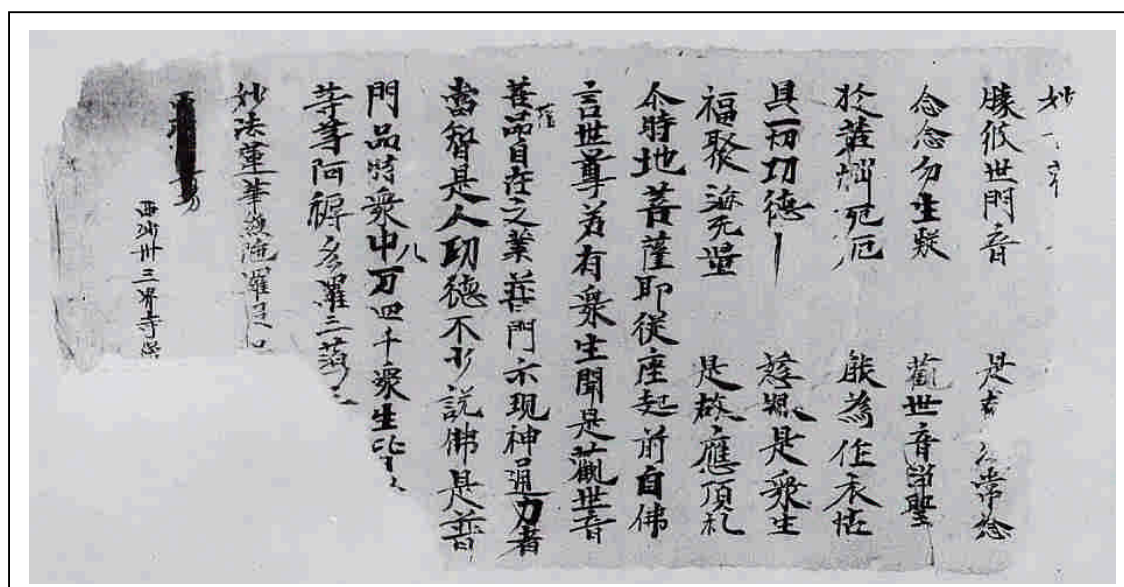 妙
勝彼世門音 是 常念
念念勿生疑 觀世音 聖
於 惱死厄 能為作衣怙
具一切功德 慈眼是衆生
福聚海无量 是故應頂礼
尒時地菩薩即從座起前自佛
言世尊若有衆生聞是觀世音
菩薩品自在之業普門示現神通力者
當智是人功德不少說佛是普
門品時衆中八万四千衆生皆
等等阿耨多羅三藐
妙法蓮華經陁羅尼品
西沙州三界寺學